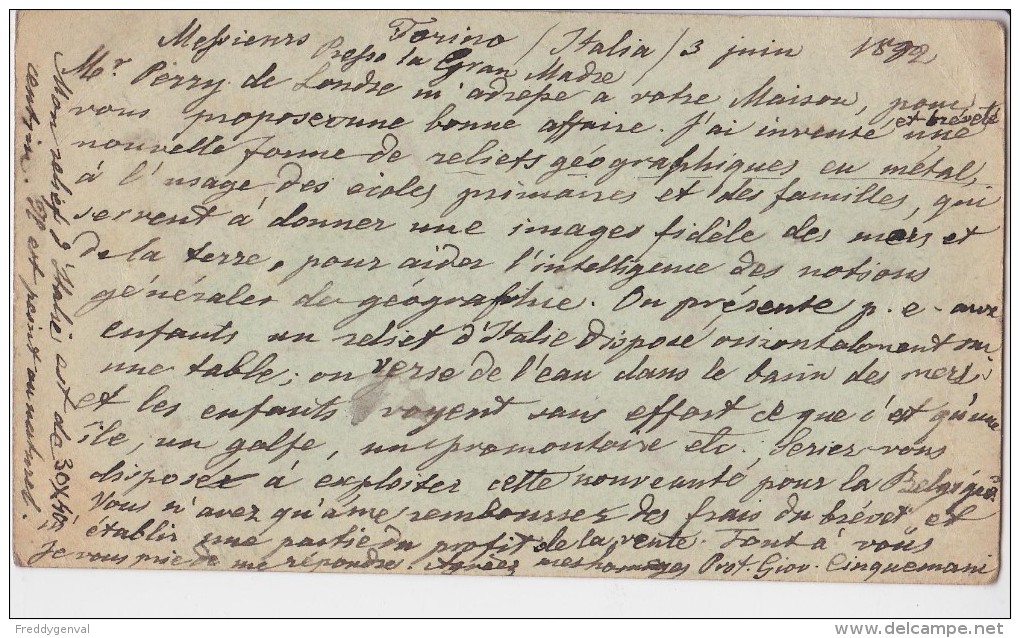 Messieurs Torino / Italia / 3 juin 1892
Presso la Gran Madre
Mr Perry de Londre m'adresse a votre Maison, pour
vous proposer une bonne affaire. J'ai inventé et brèveté une
nouvelle forme de reliefs géographiques en métal,
à l'usage des ecoles primaires et des familles, qui
servent à donner une images fidèle des mers et
de la terre, pour aider l'intelligence des notions
générales de géographie. On présente p. e. aux
enfants un relief d'Italie disposé orisontalement sur
une table; on verse de l'eau dans le basin des mers
et les enfants voyent sans effort ce que c'est qu'une
île, un golfe, un promontoire etc. Seriez-vous
disposés à exploiter cette nouveauté pour la Belgique?
Vous n'avez qu'à me rembourser des frais du brévet, et
établir une partie du profit de la vente. Tout à vous
Je vous prie de me répondre Agréez mes hommages Prof. Giov. Cinquemani
Mon relief d'Italie est de 30x40
centim. et est peint au naturel.
FreddyGenval
delcampe.net